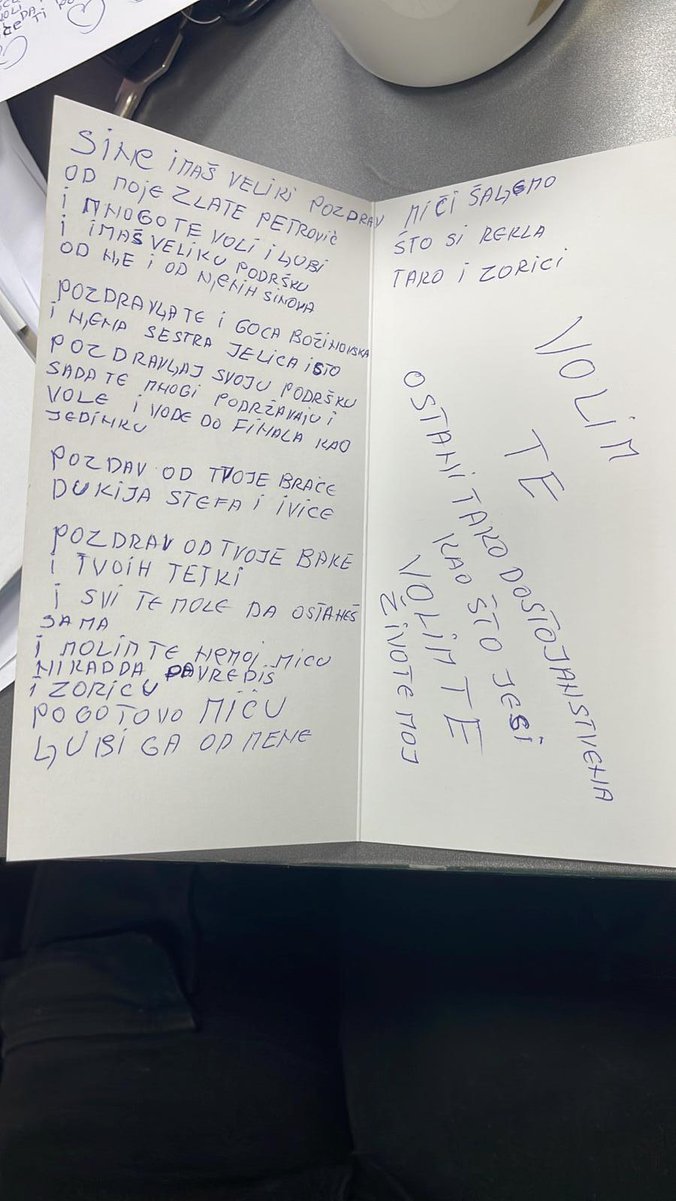 SINE IMAŠ VELIKI POZDRAV
OD MOJE ZLATE PETROVIĆ
I MNOGO TE VOLI I LJUBI
I IMAŠ VELIKU PODRŠKU
OD NJE I OD NJENIH SINOVA
POZDRAVLJA TE I GOCA BOŽINOVSKA
I NJENA SESTRA JELICA ISTO
POZDRAVLJAJ SVOJU PODRŠKU
SADA TE MNOGI PODRŽAVAJU I
VOLE I VODE DO FINALA KAO
JEDINKU
POZDAV OD TVOJE BRAĆE
DUKIJA STEFA I IVICE
POZDRAV OD TVOJE BAKE
I TVOIH TETKI
I SVI TE MOLE DA OSTANEŠ
SAMA
I MOLIM TE NEMOJ MIĆU
NIKADDA PAVREDIŠ
I ZORICU
POGOTOVO MIĆU
LJUBI GA OD MENE
MIĆI ŠALJEMO
ŠTO SI REKLA
TAKO I ZORICI
VOLIM
TE
OSTANI TAKO DOSTOJANSTVENA
KAO ŠTO JESI
VOLIM TE
ŽIVOTE MOJ